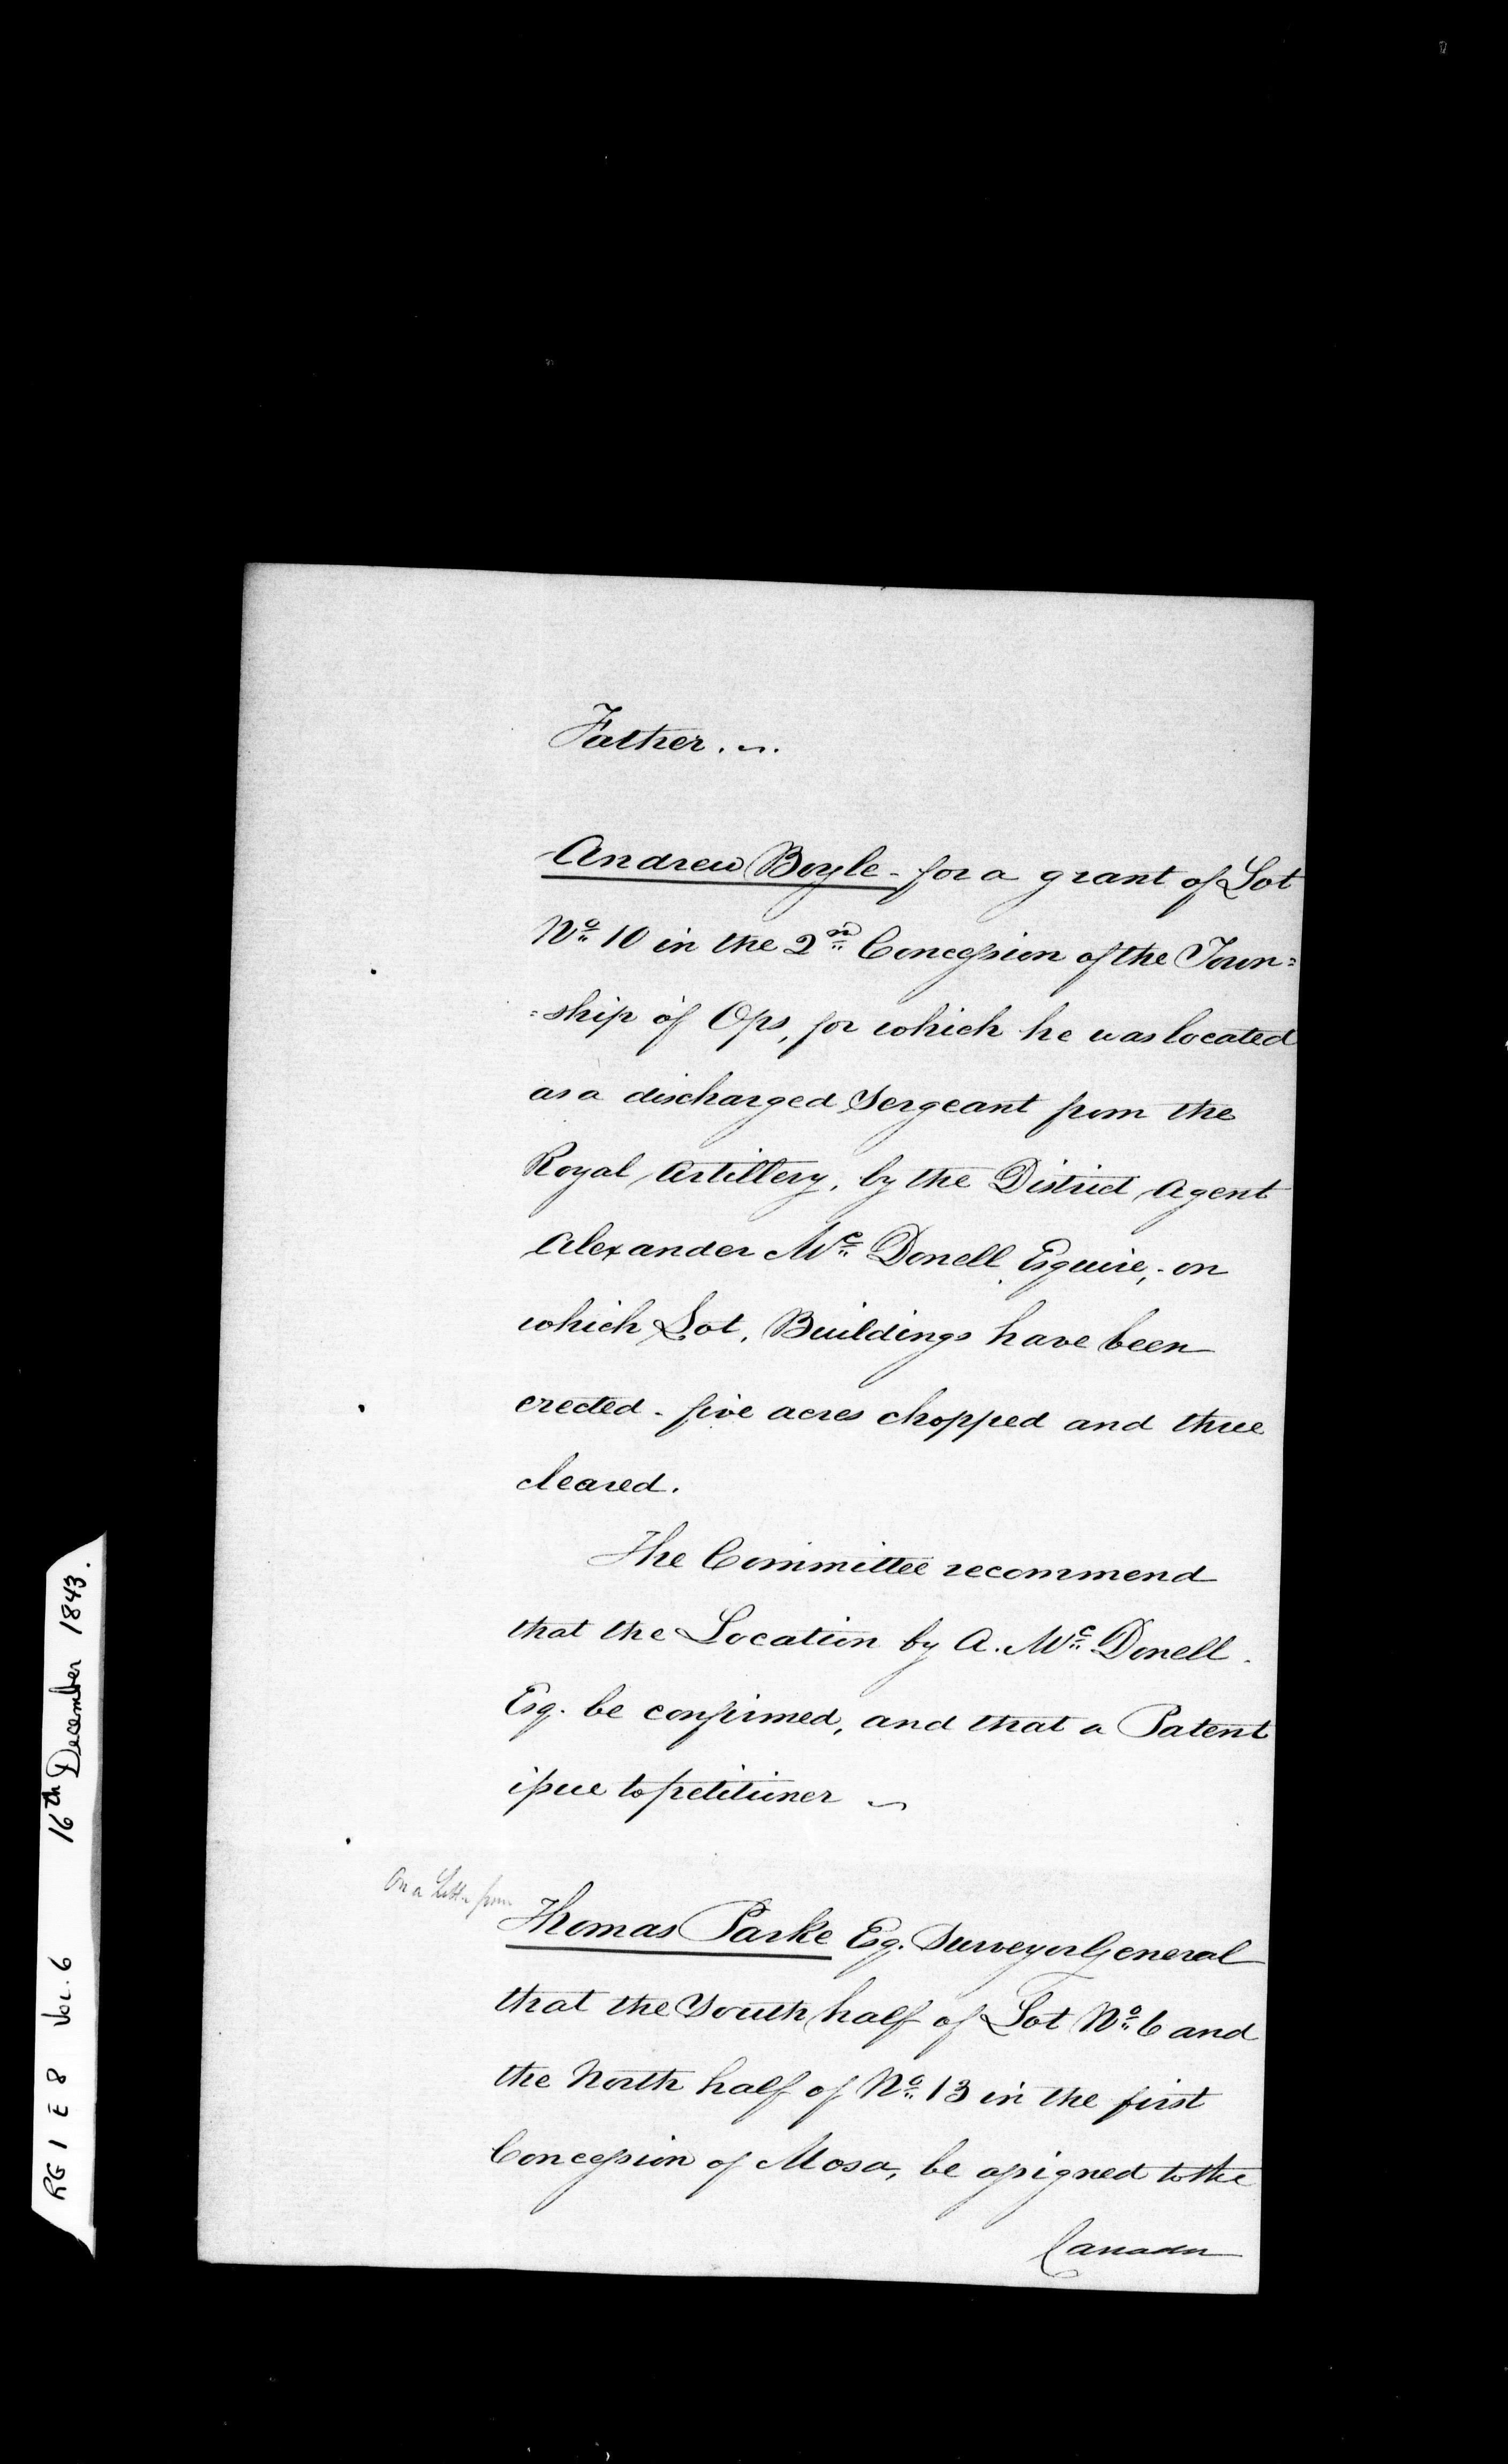 Father. ~.
Andrew Boyle - for a grant of Lot
No. 10 in the 2nd Concession of the Town=
=ship of Ops, for which he was located
as a discharged Sergeant from the
Royal Artillery, by the District Agent
Alexander Mc. Donell Esquire, - on
which Lot, Buildings have been
erected - five acres chopped and three
cleared.
The Committee recommend
that the Location by A. Mc. Donell.
Esq. be confirmed, and that a Patent
issue to petitioner ~
On a letter from
Thomas Parke Esq. Surveyor General
that the South half of Lot No. 6 and
the North half of No. 13 in the first
Concession of Mosa, be assigned to the
Canada
RG 1 E 8 Vol. 6 16th December 1843.